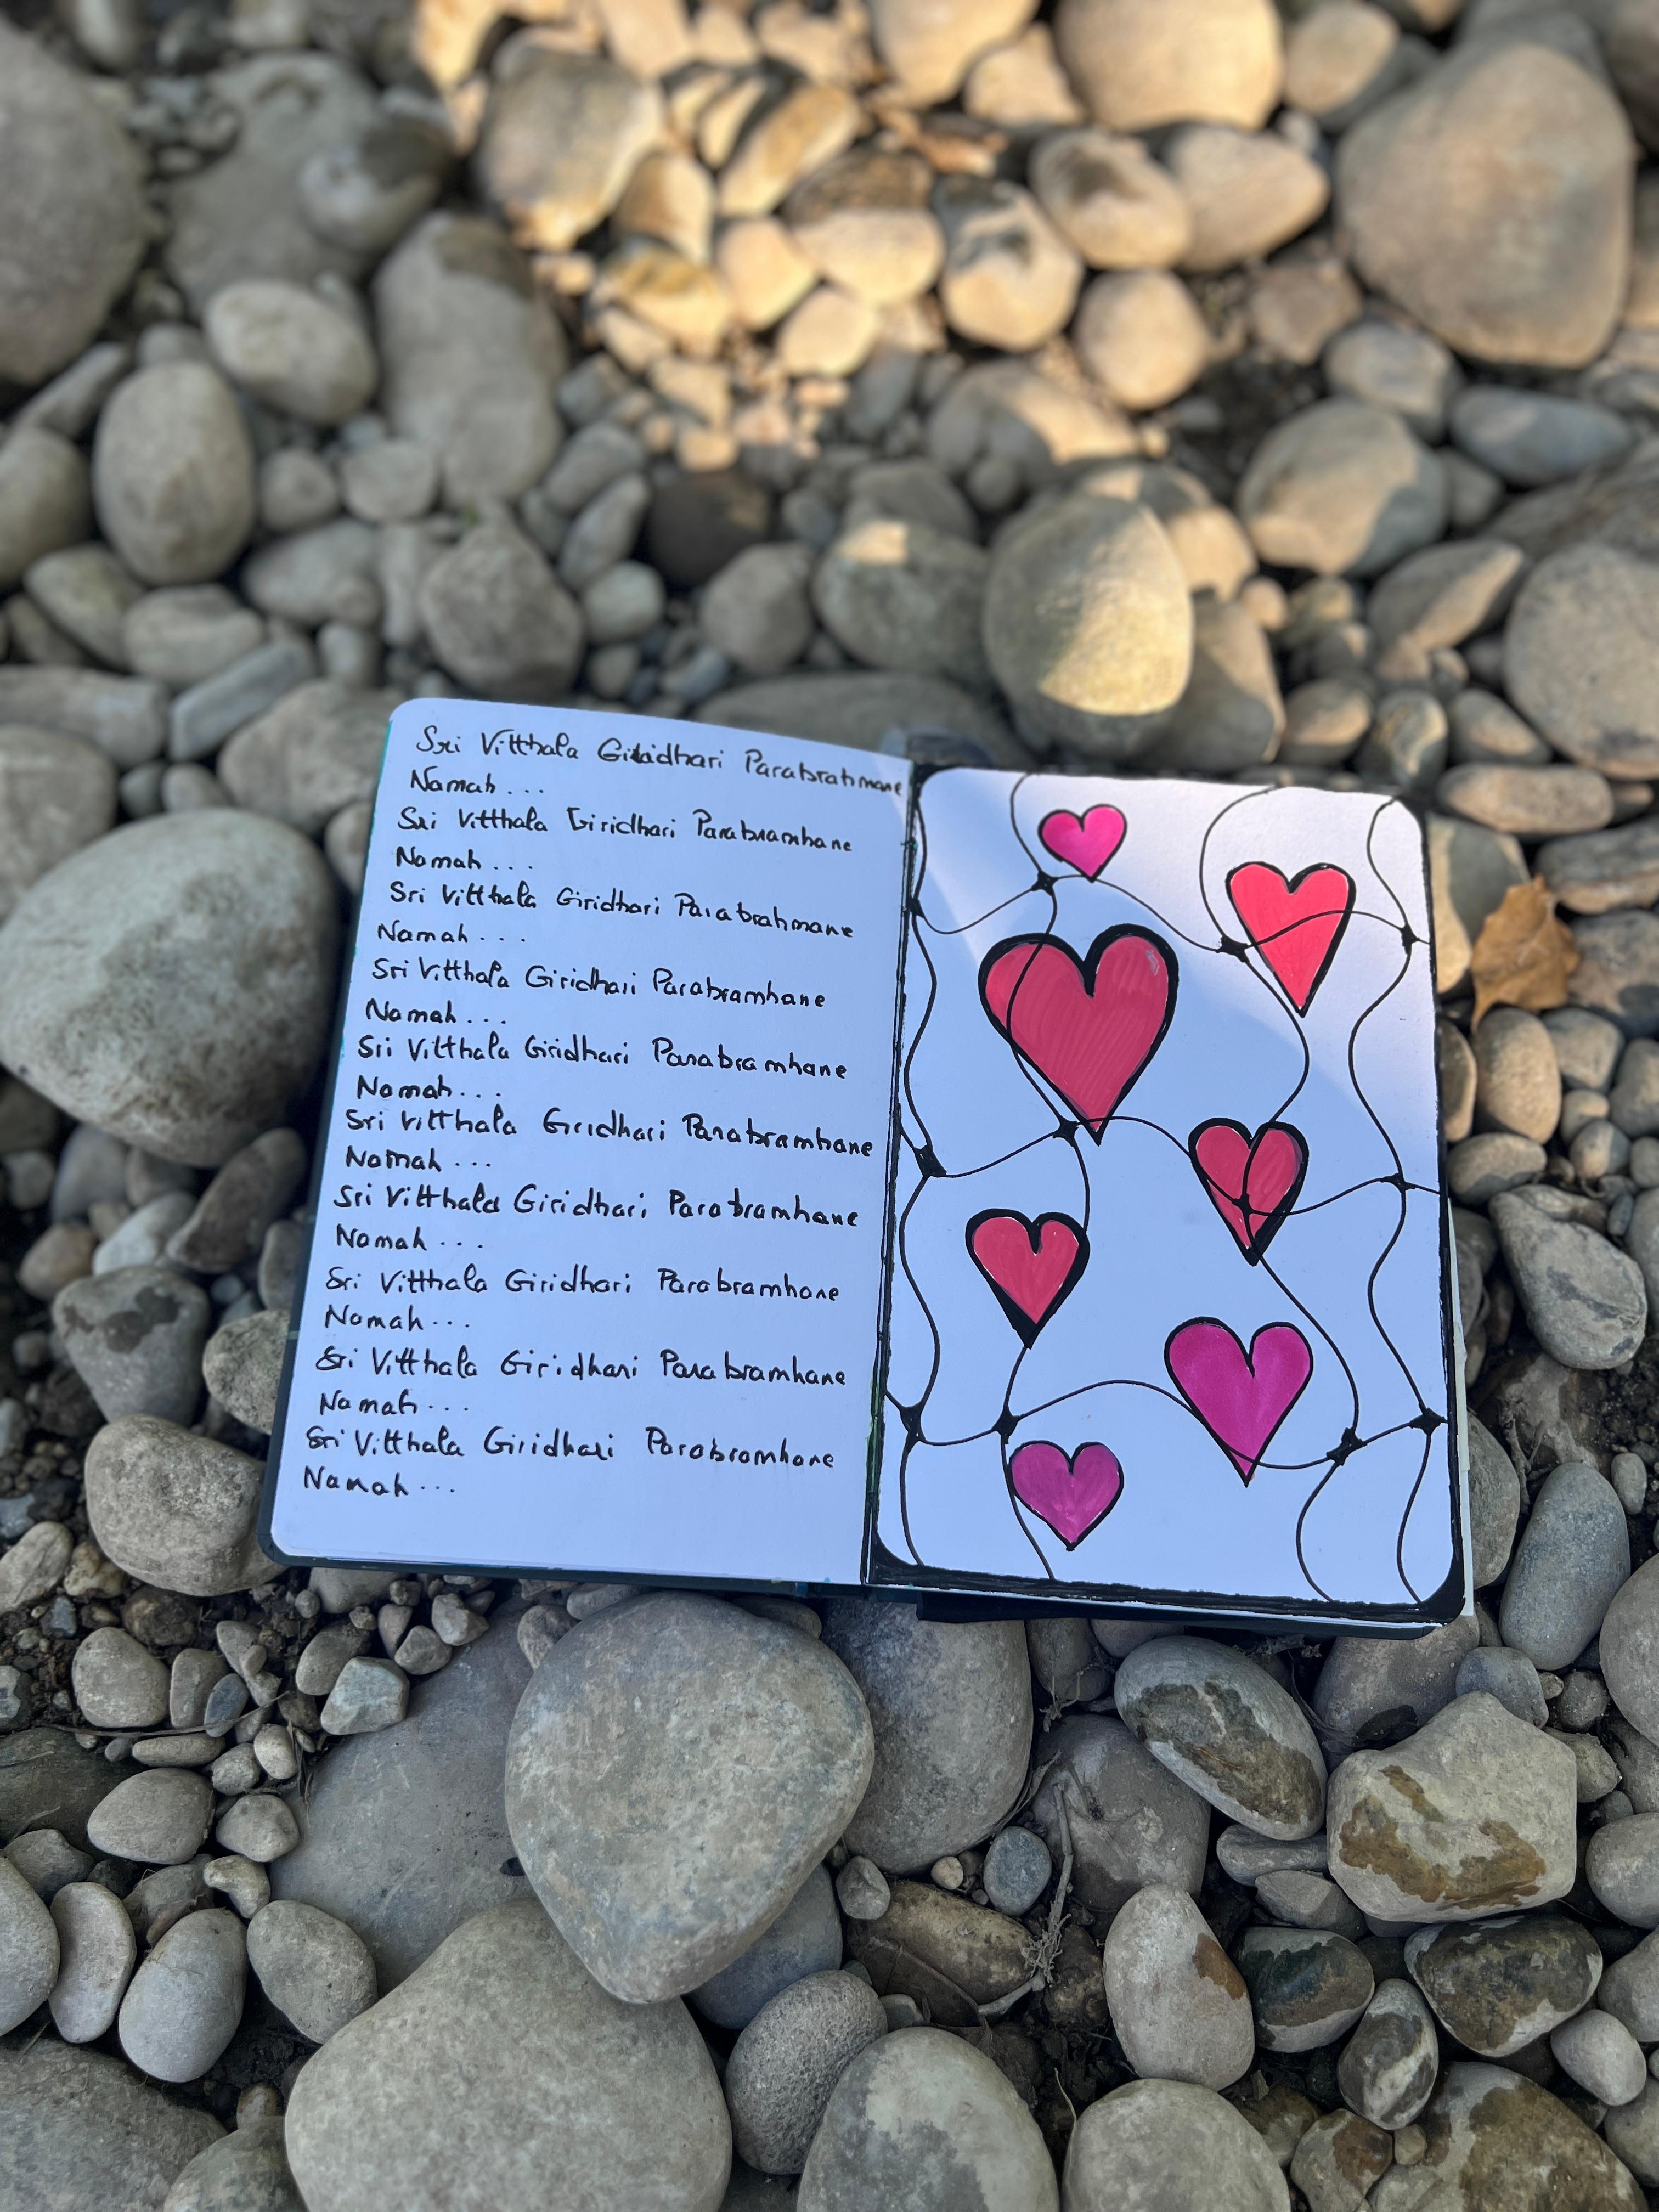 Sri Vitthala Giridhari Parabrahmane
Namah...
Sri Vitthala Giridhari Parabramhane
Namah...
Sri Vitthala Giridhari Parabrahmane
Namah...
Sri Vitthala Giridhari Parabramhane
Namah...
Sri Vitthala Giridhari Parabramhane
Namah...
Sri Vitthala Giridhari Parabramhane
Namah...
Sri Vitthala Giridhari Parabramhane
Namah...
Sri Vitthala Giridhari Parabramhane
Namah...
Sri Vitthala Giridhari Parabramhane
Namah...
Sri Vitthala Giridhari Parabramhane
Namah...